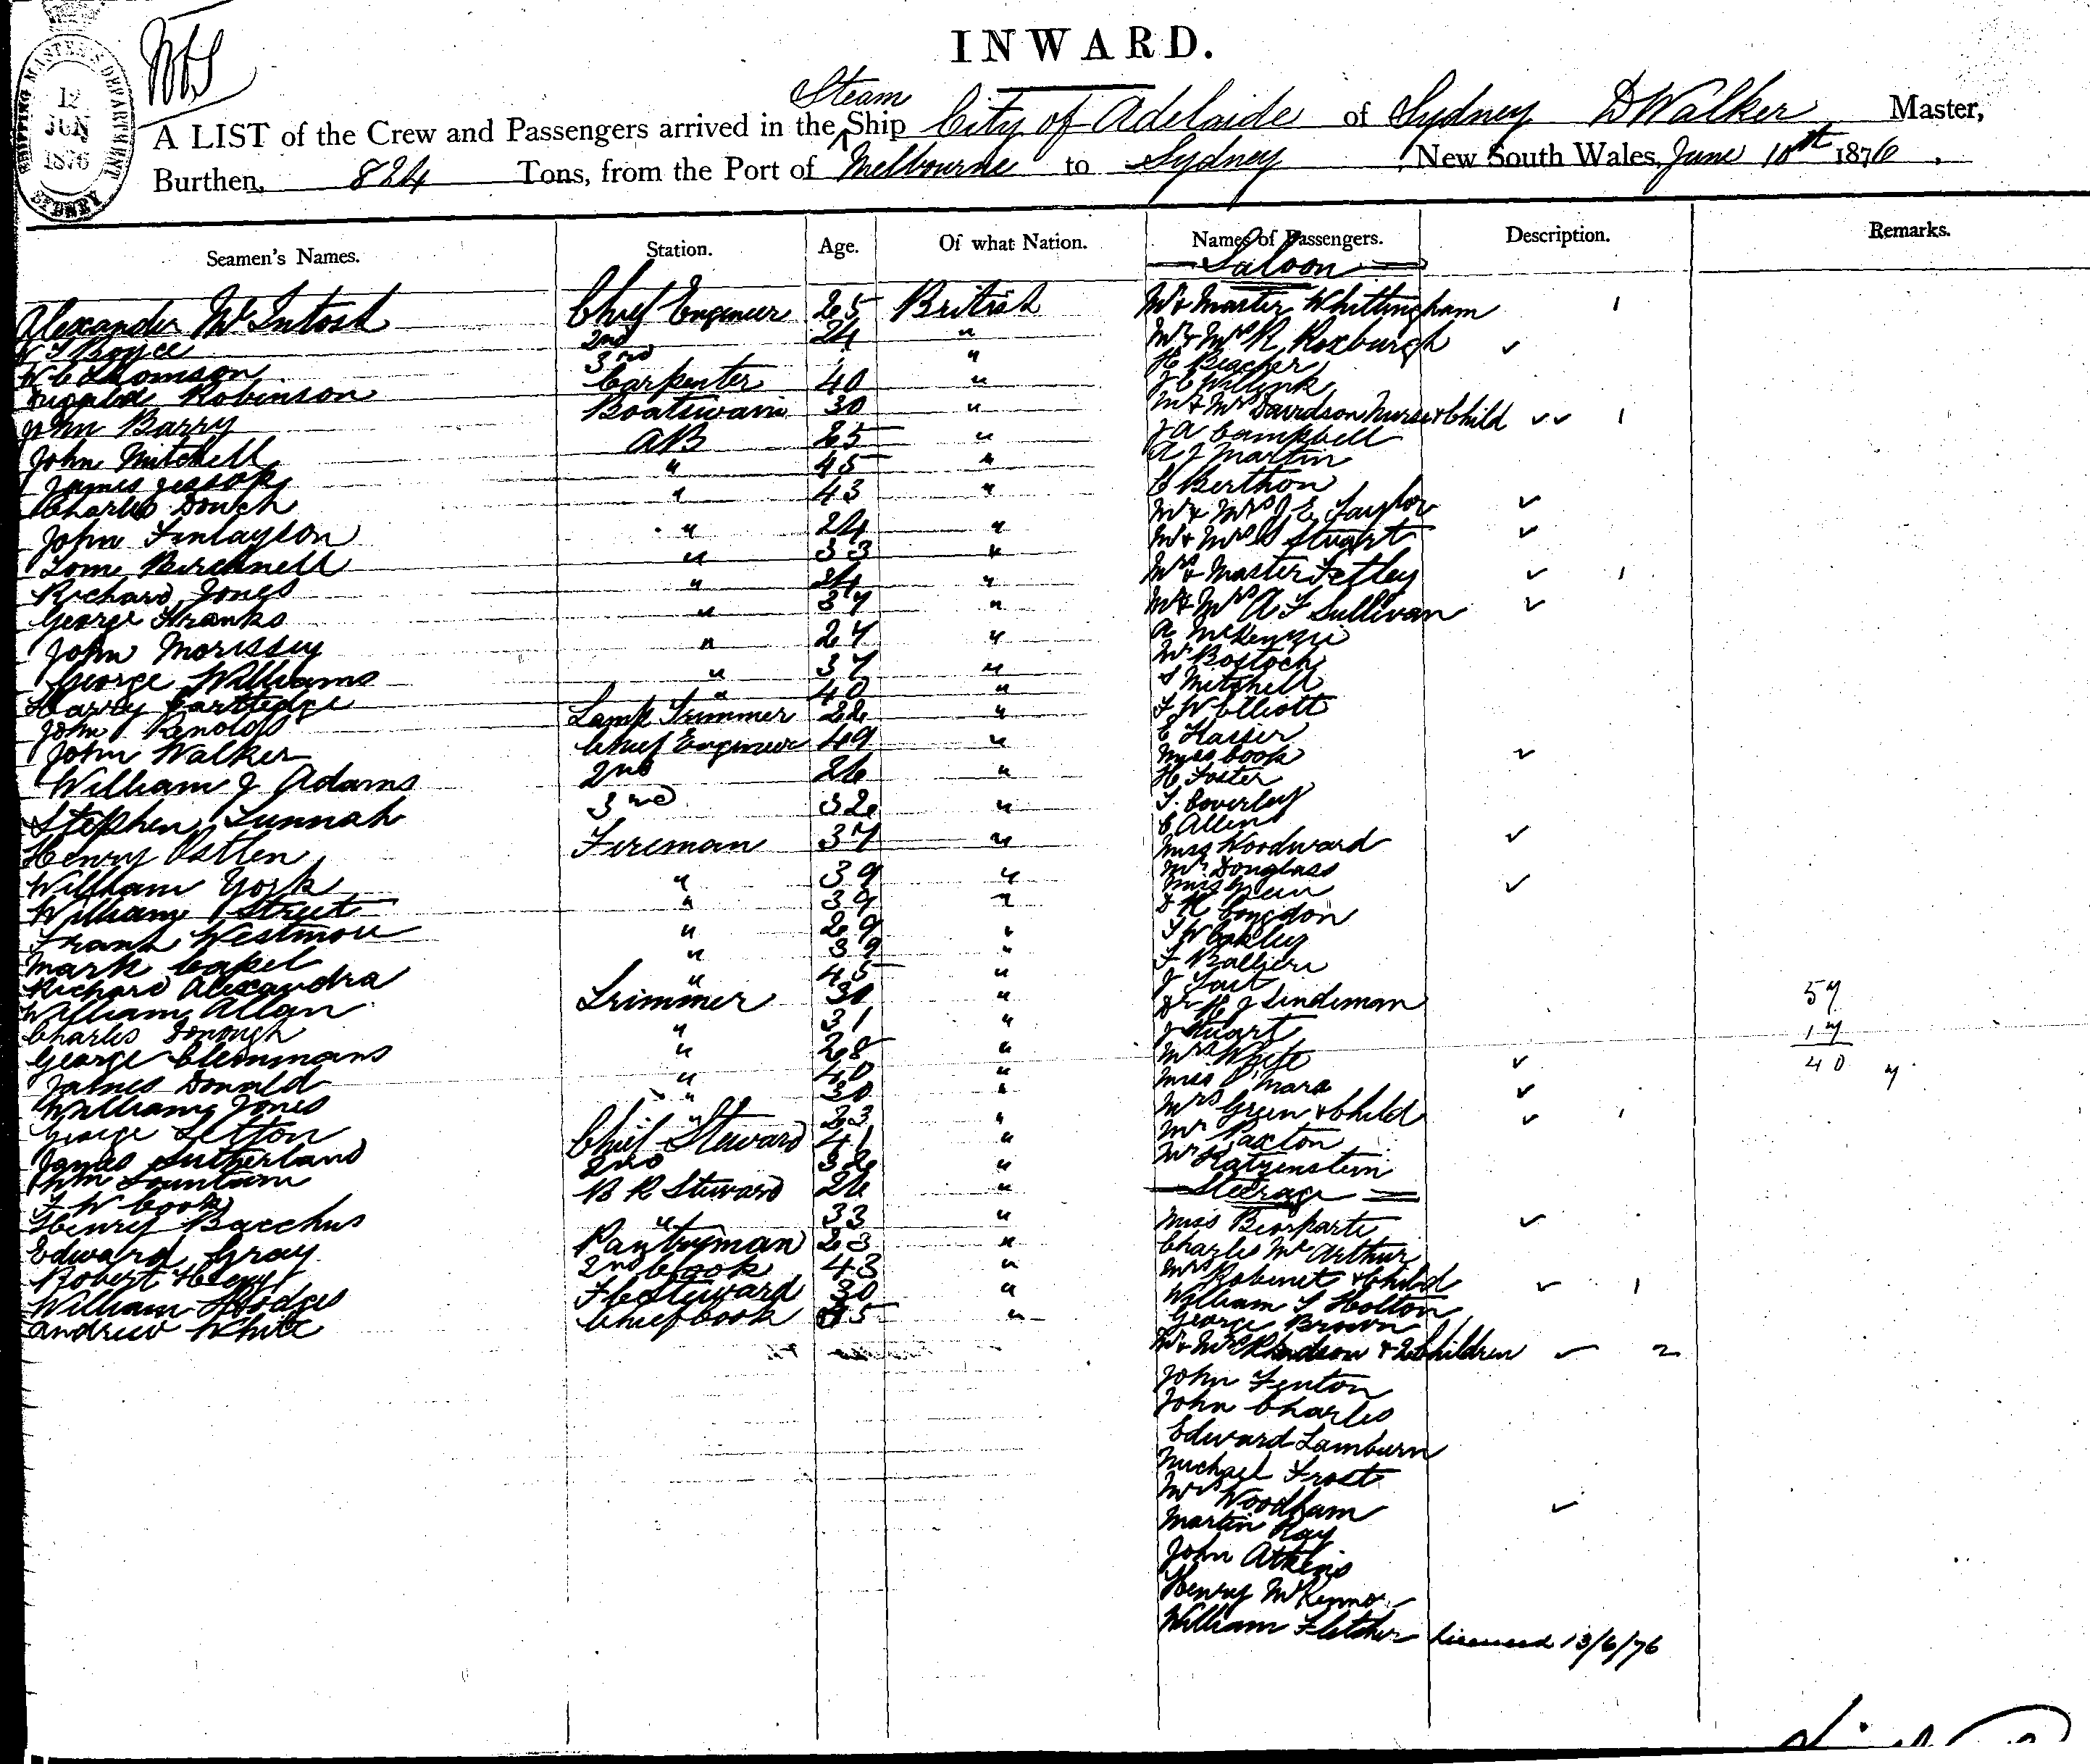 INWARD.
SHIPPING MASTER'S DEPARTMENT
12
JUN
1876
SYDNEY
Steam
A LIST of the Crew and Passengers arrived in the Ship City of Adelaide of Sydney D Walker Master,
Burthen, 824 Tons, from the Port of Melbourne to Sydney New South Wales, June 10th 1876.
Seamen's Names. Station. Age. Of what Nation. Names of Passengers. Description. Remarks.
Saloon
Alexander McIntosh Chief 25 British Mr & Master Whittingham 1
Boyce 2nd 24 " Mr & Mrs R Roxburgh ✓
W C Thomson 3rd " H Beacher
Robinson Carpenter 40 " J C Willink
John Barry Boatswain 30 " Mr & Mrs Davidson Nurse & Child ✓✓ 1
John Mitchell AB 25 " J A Campbell
James Jessop " 45 " A J Martin
Charles " 43 " C Berthon
John Finlayson " 24 " Mr & Mrs J E Taylor ✓
Tom Birchnell " 33 " Mr & Mrs Stuart ✓
Richard Jones " 24 " Mrs & Master Fetley ✓ 1
George Franks " 37 " Mr & Mrs A F Sullivan ✓
John Morissey " 27 " A McKenzie
George Williams " 37 " Mr Bostock
Harry Cartledge " 40 " S Mitchell
John Renolds Lamp Trimmer 22 " F W Elliott
John Walker Chief Engineer 49 " E
William J Adams 2nd 26 " Miss Cook ✓
H Foster
Stephen Tunnah 3rd 32 " T. Coverley
Henry Fireman 37 " C Allen
Miss Woodward ✓
William York " 39 " Mr Douglass
William Street " 39 " Miss Green ✓
Frank Westmore " 29 " Congdon
Mark Capel " 39 " Oakley
Richard Alexandra " 45 " F
William Allan Trimmer 31 " J Tait
Charles Donough " 31 " Dr H J Lindeman 57
George Clemmans " 28 " J Stuart 17
James Donald " 40 " Mrs White ✓ 40 7
William Jones " 30 " Miss O'Mara ✓
George " 23 " Mrs Green & Child ✓ 1
James Sutherland Chief Steward 41 " Mr Paxton
Wm Fountain 2nd 32 " Mr Katzenstein
Steerage
F W Cook B R Steward 26 " Miss ✓
Henry Bacchus " 33 " Charles McArthur
Edward Gray Pantryman 23 " Mrs Robinet & Child ✓ 1
Robert 2nd Cook 43 " William Holton
William Hodges F C Steward 30 " George Brown
Andrew White Chief Cook 45 " Mr & Mrs & 2 Children ✓ 2
John Fenton
John Charles
Edward Lamburn
Michael Frost
Mrs Woodham ✓
Martin Ray
John Atkins
Henry McKenna
William Fletcher 13/6/76